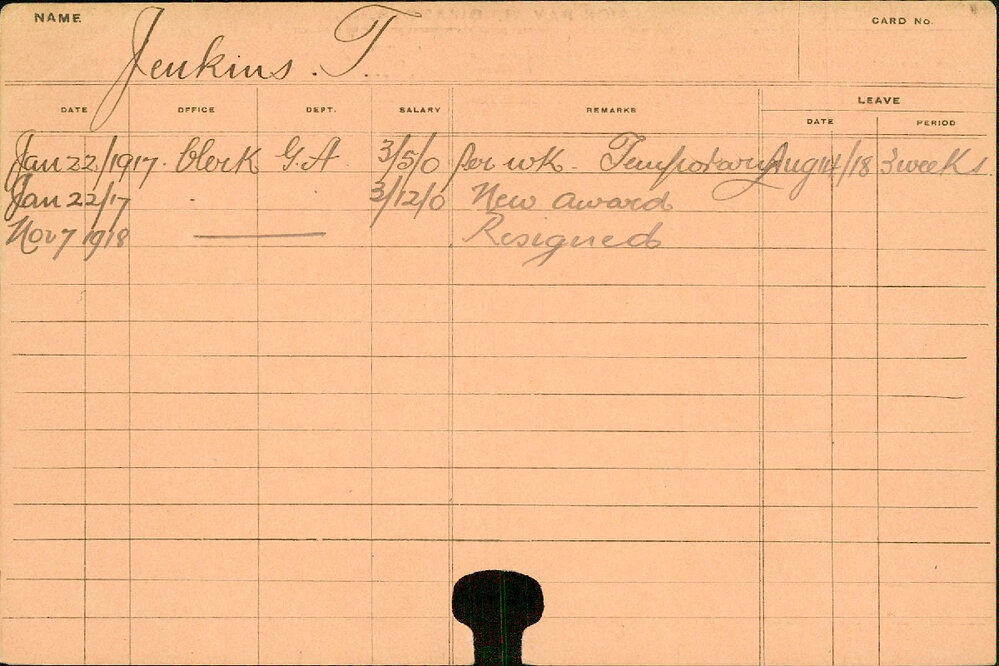 NAME
CARD No.
Jenkins. T.
DATE OFFICE DEPT. SALARY REMARKS LEAVE
DATE PERIOD
Jan 22/1917. Clerk G.A 3/5/0 per wk - Temporary Aug 14/18 3 weeks.
Jan 22/17 3/12/0 New award
Nov 7 1918 Resigned